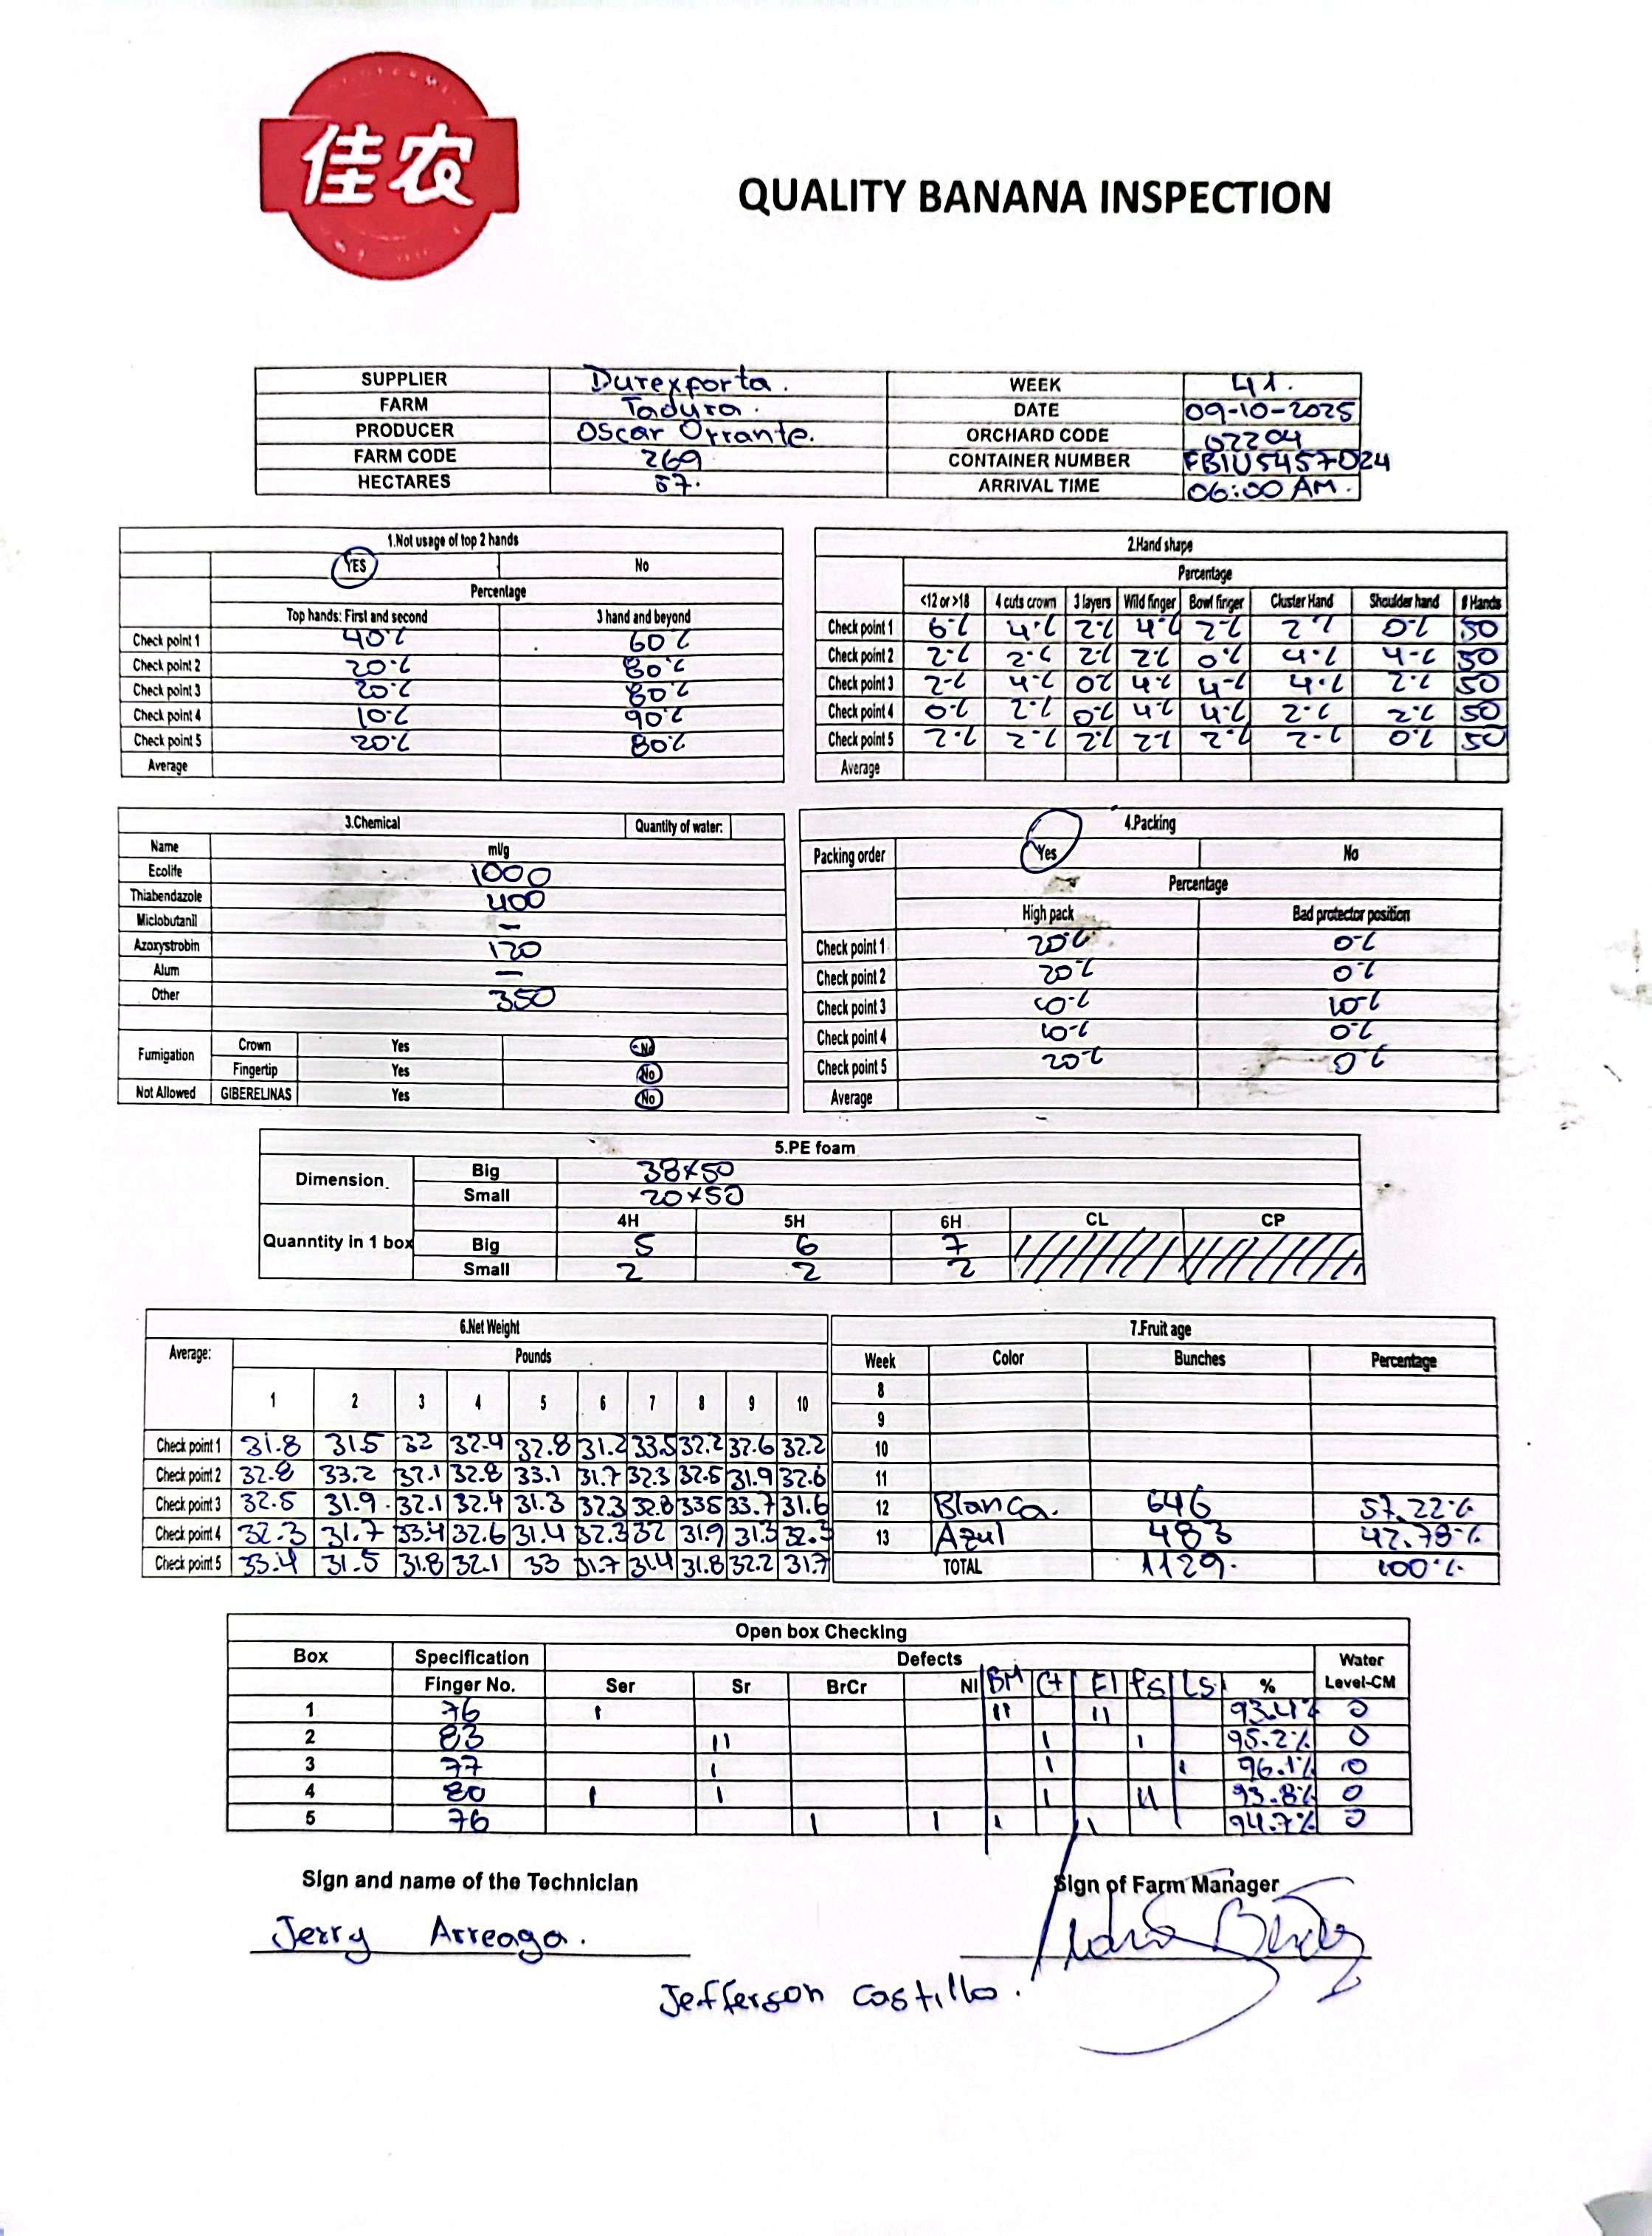 佳农
QUALITY BANANA INSPECTION
SUPPLIER Durexporta. WEEK 41.
FARM Tadura. DATE 09-10-2025
PRODUCER Oscar Orrante. ORCHARD CODE 02204
FARM CODE 269 CONTAINER NUMBER FBIU5457024
HECTARES 57. ARRIVAL TIME 06:00 AM.
1.Not usage of top 2 hands
YES No
Percentage
Top hands: First and second 3 hand and beyond
Check point 1 40% 60%
Check point 2 20% 80%
Check point 3 20% 80%
Check point 4 10% 90%
Check point 5 20% 80%
Average
2.Hand shape
Percentage
<12 or >18 4 cuts crown 3 layers Wild finger Bowl finger Cluster Hand Shoulder hand # Hands
Check point 1 6% 4% 2% 4% 2% 2% 0% 50
Check point 2 2% 2% 2% 2% 0% 4% 4% 50
Check point 3 2% 4% 0% 4% 4% 4% 2% 50
Check point 4 0% 2% 0% 4% 4% 2% 2% 50
Check point 5 2% 2% 2% 2% 2% 2% 0% 50
Average
3.Chemical Quantity of water:
Name ml/g
Ecolife 1000
Thiabendazole 400
Miclobutanil -
Azoxystrobin 120
Alum -
Other 350
Fumigation Crown Yes No
Fingertip Yes No
Not Allowed GIBERELINAS Yes No
4.Packing
Packing order Yes No
Percentage
High pack Bad protector position
Check point 1 20% 0%
Check point 2 20% 0%
Check point 3 10% 10%
Check point 4 10% 0%
Check point 5 20% 0%
Average
5.PE foam
Dimension Big 38x50
Small 20x50
4H 5H 6H CL CP
Quanntity in 1 box Big 5 6 7
Small 2 2 2
6.Net Weight
Average: Pounds
1 2 3 4 5 6 7 8 9 10
Check point 1 31.8 31.5 32 32.4 32.8 31.2 33.5 32.2 32.6 32.2
Check point 2 32.8 33.2 32.1 32.8 33.1 31.7 32.3 32.5 31.9 32.6
Check point 3 32.5 31.9 32.1 32.4 31.3 32.3 32.8 33.5 33.7 31.6
Check point 4 32.3 31.7 33.4 32.6 31.4 32.3 32 31.9 31.3 32.3
Check point 5 33.4 31.5 31.8 32.1 33 31.7 31.4 31.8 32.2 31.7
7.Fruit age
Week Color Bunches Percentage
8
9
10
11
12 Blanca. 646 57.22%
13 Azul 483 42.78%
TOTAL 1129. 100%.
Open box Checking
Box Specification Defects Water
Finger No. Ser Sr BrCr NI BM Ct EI fs LS % Level-CM
1 76 I II II 93.4% 0
2 83 II I I 95.2% 0
3 77 I I I 96.1% 0
4 80 I I I II 93.8% 0
5 76 I I I I 94.7% 0
Sign and name of the Technician Sign of Farm Manager
Jerry Arreaga.
Jefferson Castillo.